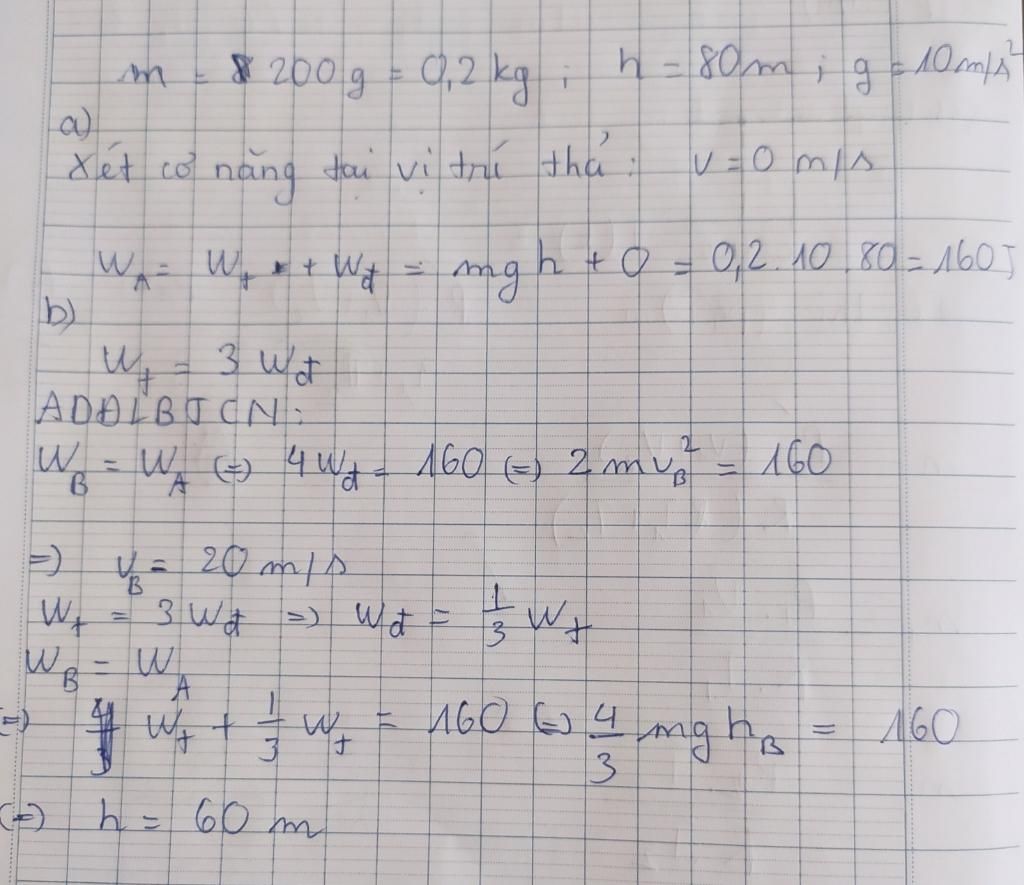 m = 200g = 0,2 kg ; h = 80m ; g = 10m/s²
a)
Xét cơ năng tại vị trí thả : v = 0 m/s
W_A = W_t + W_đ = mgh + 0 = 0,2.10.80 = 160J
b)
W_t = 3 W_đ
ADĐLBTCN :
W_B = W_A (=) 4W_đ = 160 (=) 2 m v_B² = 160
=) v_B = 20 m/s
W_t = 3 W_đ =) W_đ = 1/3 W_t
W_B = W_A
(=) W_t + 1/3 W_t = 160 (=) 4/3 mgh_B = 160
(=) h = 60 m